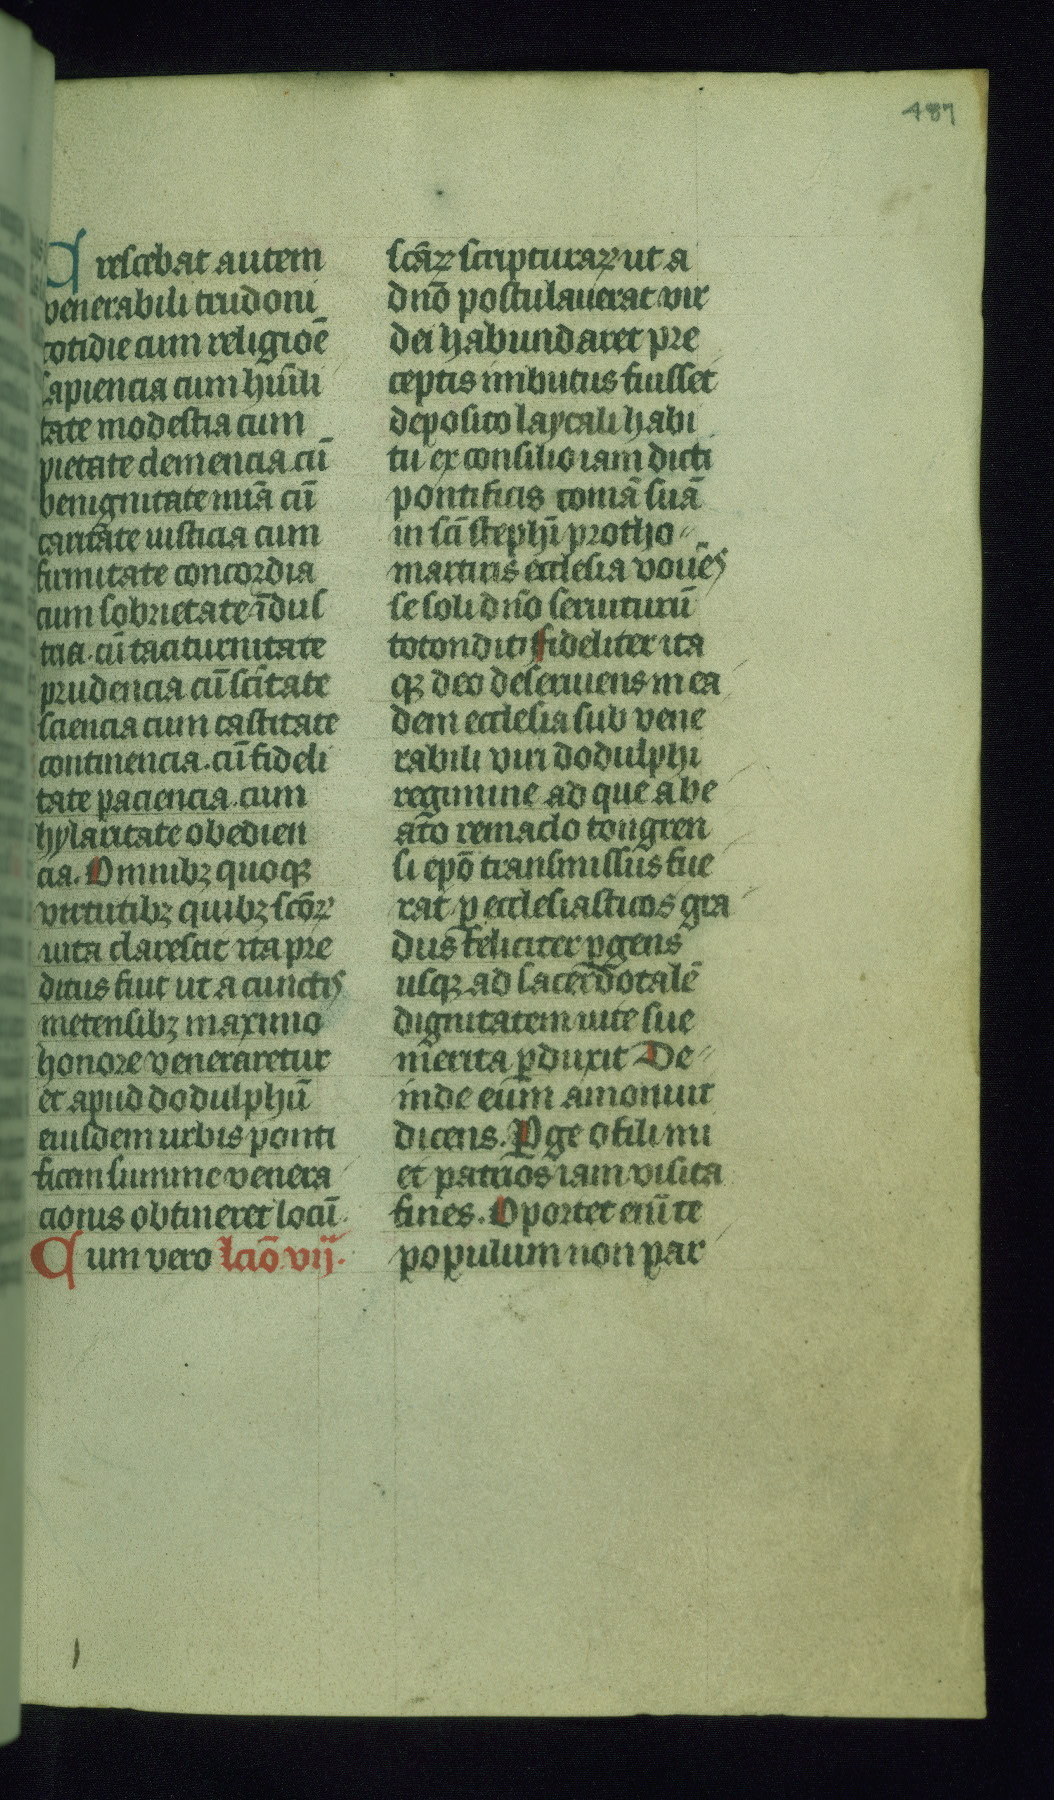 487
Crescebat autem
venerabili trudoni
cotidie cum religiōe
sapiencia cum hūili
tate modestia cum
pietate clemencia cū
benignitate mīa cū
caritate iusticia cum
firmitate concordia
cum sobrietate īdus
tria. cū taciturnitate
prudencia cū scītate
sciencia cum castitate
continencia. cū fideli
tate paciencia. cum
hylaritate obedien
cia. Omnibꝫ quoqꝫ
virtutibꝫ quibꝫ scōꝝ
uita clarescit ita pre
ditus fuit ut a cunctis
metensibꝫ maximo
honore veneraretur
et apud dodulphū
eiusdem urbis ponti
ficem summe venera
cionis obtineret locū.
Cum vero lcīo vij.
scāꝝ scripturaꝝ ut a
dnō postulauerat vir
dei habundaret pre
ceptis imbutus fuisset
deposito laycali habi
tu ex consilio iam dicti
pontificis comā suā
in scī stephī protho
martiris ecclesia vouēs
se soli dnō seruiturū
totondit fideliter ita
qꝫ deo deseruiens in ea
dem ecclesia sub vene
rabili viri dodulphi
regimine ad quē a be
ato remaclo tongren
si epō transmissus fue
rat ꝑ ecclesiasticos gra
dus feliciter ꝓgens
usqꝫ ad sacerdotalē
dignitatem uite sue
merita ꝑduxit De
inde eum amonuit
dicens. Ꝑge o fili mi
et patrios iam visita
fines. Oportet enī te
populum non par